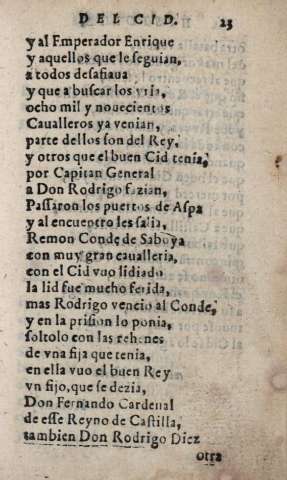 DEL CID. 23
y al Emperador Enrique
y aquellos que le seguian,
a todos desafiaua
y que a buscar los yria,
ocho mil y nouecientos
Caualleros ya venian,
parte dellos son del Rey,
y otros que el buen Cid tenia,
por Capitan General
a Don Rodrigo fazian,
Passaron los puertos de Aspa
y al encuentro les salia,
Remon Conde de Saboya
con muy gran caualleria,
con el Cid vuo lidiado
la lid fue mucho ferida,
mas Rodrigo vencio al Conde,
y en la prision lo ponia,
soltolo con las rehenes
de vna fija que tenia,
en ella vuo el buen Rey
vn fijo, que se dezia,
Don Fernando Cardenal
de esse Reyno de Castilla,
tambien Don Rodrigo Diez
otra